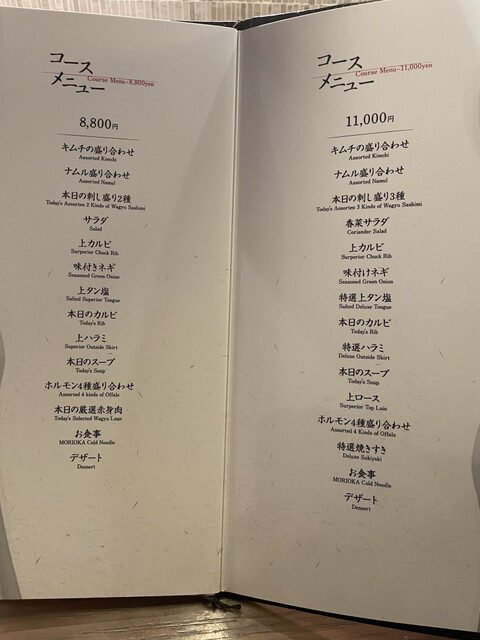 コース
メニュー
Course Menu-8,800yen
8,800円
キムチの盛り合わせ
Assorted Kimchi
ナムル盛り合わせ
Assorted Namul
本日の刺し盛り2種
Today's Assorten 2 Kinds of Wagyu Sashimi
サラダ
Salad
上カルビ
Surperior Chuck Rib
味付きネギ
Seasoned Green Onion
上タン塩
Salted Superior Tongue
本日のカルビ
Today's Rib
上ハラミ
Superior Outside Skirt
本日のスープ
Today's Soup
ホルモン4種盛り合わせ
Assorted 4 kinds of Offals
本日の厳選赤身肉
Today's Selected Wagyu Lean
お食事
MORIOKA Cold Noodle
デザート
Dessert
コース
メニュー
Course Menu-11,000yen
11,000円
キムチの盛り合わせ
Assorted Kimchi
ナムル盛り合わせ
Assorted Namul
本日の刺し盛り3種
Today's Assorten 3 Kinds of Wagyu Sashimi
香菜サラダ
Coriander Salad
上カルビ
Surperior Chuck Rib
味付けネギ
Seasoned Green Onion
特選上タン塩
Salted Deluxe Tongue
本日のカルビ
Today's Rib
特選ハラミ
Deluxe Outside Skirt
本日のスープ
Today's Soup
上ロース
Surperior Top Loin
ホルモン4種盛り合わせ
Assorted 4 Kinds of Offals
特選焼きすき
Deluxe Sukiyaki
お食事
MORIOKA Cold Noodle
デザート
Dessert